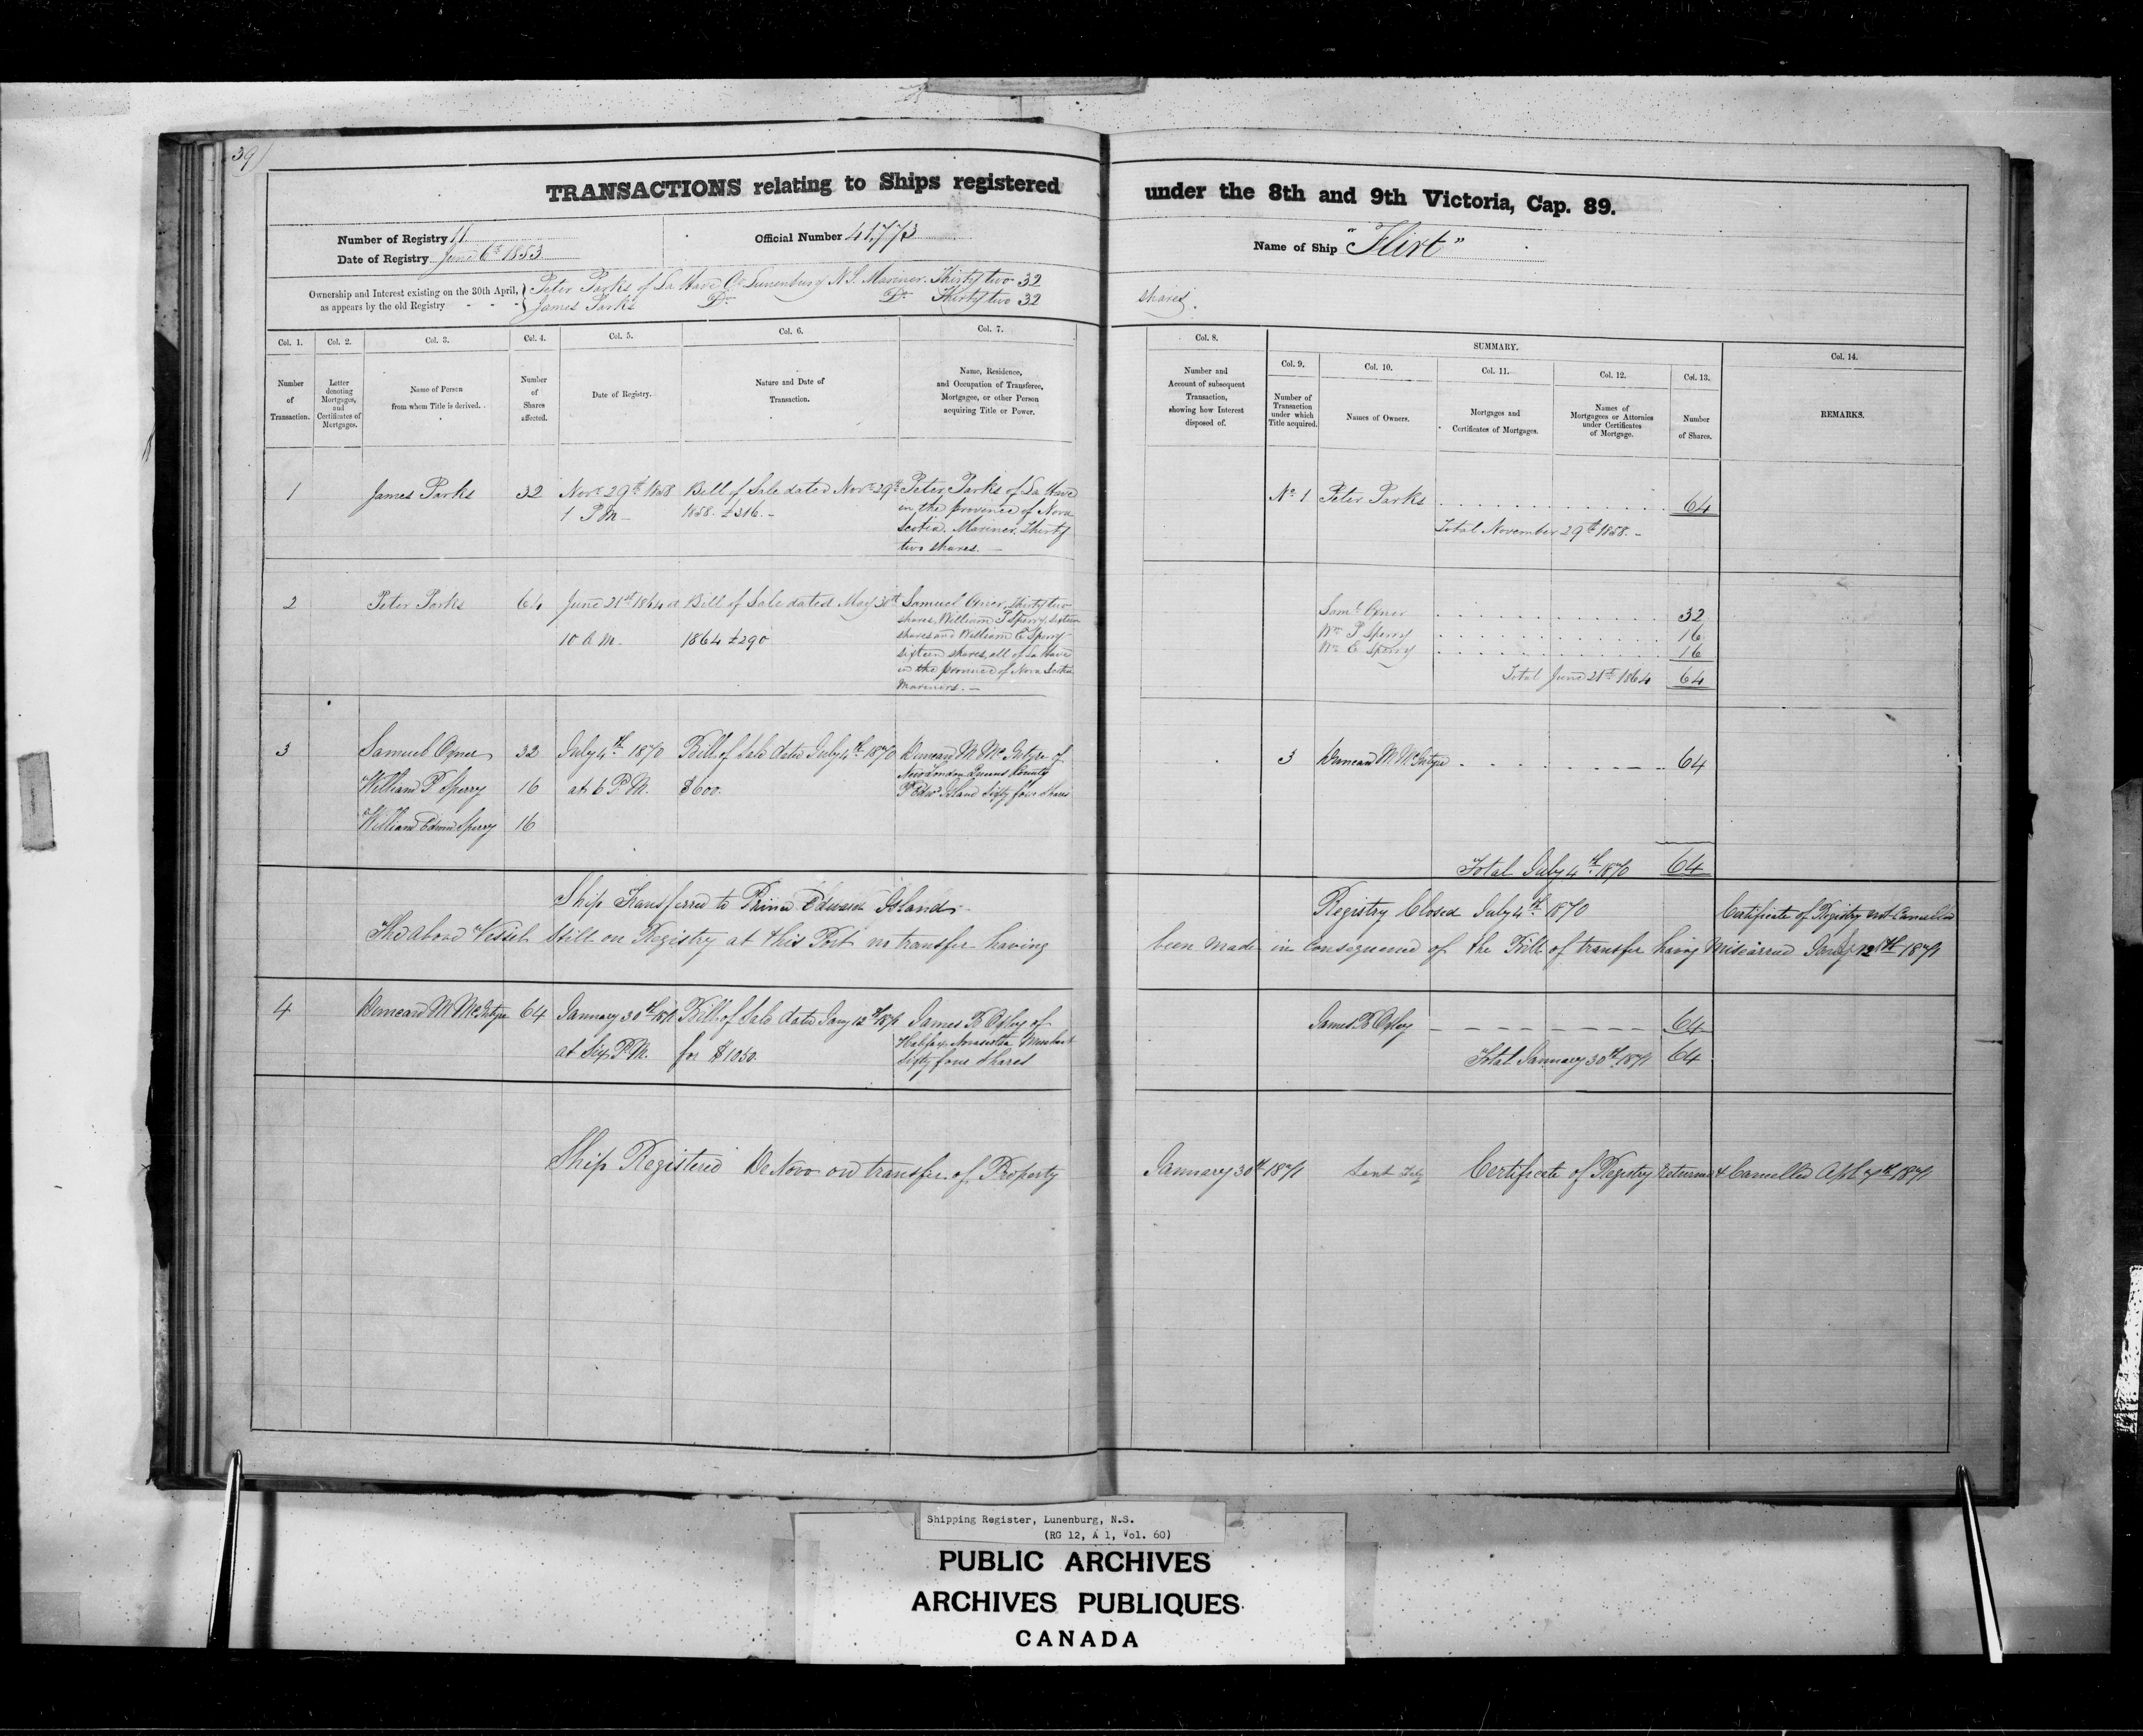 39
TRANSACTIONS relating to Ships registered under the 8th and 9th Victoria, Cap. 89.
Number of Registry 11
Date of Registry June 6th 1853
Official Number 41,773
Name of Ship "Flirt"
Ownership and Interest existing on the 30th April, as appears by the old Registry
Peter Parks of La Have Co Lunenburg N.S. Mariner. Thirty two 32 shares.
James Parks Do Do Thirty two 32
Col. 1. Number of Transaction.
Col. 2. Letter denoting Mortgages, and Certificates of Mortgages.
Col. 3. Name of Person from whom Title is derived.
Col. 4. Number of Shares affected.
Col. 5. Date of Registry.
Col. 6. Nature and Date of Transaction.
Col. 7. Name, Residence, and Occupation of Transferee, Mortgagee, or other Person acquiring Title or Power.
Col. 8. Number and Account of subsequent Transaction, showing how Interest disposed of.
SUMMARY.
Col. 9. Number of Transaction under which Title acquired.
Col. 10. Names of Owners.
Col. 11. Mortgages and Certificates of Mortgages.
Col. 12. Names of Mortgagees or Attornies under Certificates of Mortgage.
Col. 13. Number of Shares.
Col. 14. REMARKS.
1 James Parks 32 Novr 29th 1858 Bill of Sale dated Novr 29th Peter Parks of La Have
1 P.M. 1858. £316. in the province of Nova
Scotia. Mariner. Thirty
two shares.
No 1 Peter Parks 64
Total November 29th 1858.
2 Peter Parks 64 June 21st 1864 at Bill of Sale dated May 31st Samuel thirty two
10 A.M. 1864 £290 shares, William P Sperry, sixteen
shares and William E Sperry
sixteen shares, all of La Have
in the province of Nova Scotia
Mariners.
Saml 32
Wm P Sperry 16
Wm E Sperry 16
Total June 21st 1864 64
3 Samuel 32 July 4th 1870 Bill of Sale dated July 4th 1870 Duncan M McIntyre of
William P Sperry 16 at 6 P.M. $600. New London Queens County
William Edwin Sperry 16 P Edwd Island Sixty four Shares
3 Duncan M McIntyre 64
Total July 4th 1870 64
Ship Transferred to Prince Edward Island.
Registry Closed July 4th 1870 Certificate of Registry not Cancelled
The above Vessel still on Registry at this Port no transfer having been made in consequence of the Bill of transfer having Miscarried Jany 12th 1871
4 Duncan M McIntyre 64 January 30th 1871 Bill of Sale dated Jany 12th 1871 James B Oxley of
at Six P.M. for $1050. Halifax Novascotia Merchant
Sixty four Shares
James B Oxley 64
Total January 30th 1871 64
Ship Registered De Novo on transfer of Property January 30th 1871 Certificate of Registry returned & Cancelled Apl 7th 1871
Shipping Register, Lunenburg, N.S.
(RG 12, A 1, Vol. 60)
PUBLIC ARCHIVES
ARCHIVES PUBLIQUES
CANADA